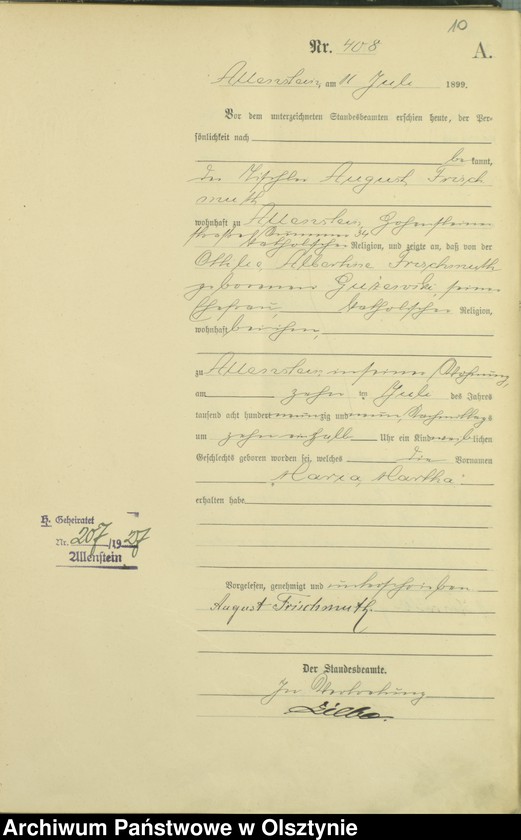 10
Nr. 408
A.
Allenstein, am 11 Juli 1899.
Vor dem unterzeichneten Standesbeamten erschien heute, der Per-
sönlichkeit nach
be kannt,
der Tischler August Frisch
muth
wohnhaft zu Allenstein, Hohenstein
Nummer 34
katholischer Religion, und zeigte an, daß von der
Ottilie, Albertine Frischmuth
geborenen seiner
Ehefrau, katholischer Religion,
wohnhaft bei ihm,
zu Allenstein, in seiner Wohnung,
am zehn ten Juli des Jahres
tausend acht hundert neunzig und neun, Nachmittags
um zehn einhalb Uhr ein Kind weiblichen
Geschlechts geboren worden sei, welches die Vornamen
Maria, Martha
erhalten habe
H. Geheiratet
Nr. 207/1927
Allenstein
Vorgelesen, genehmigt und unterschrieben
August Frischmuth
Der Standesbeamte.
In Vertretung
Archiwum Państwowe w Olsztynie